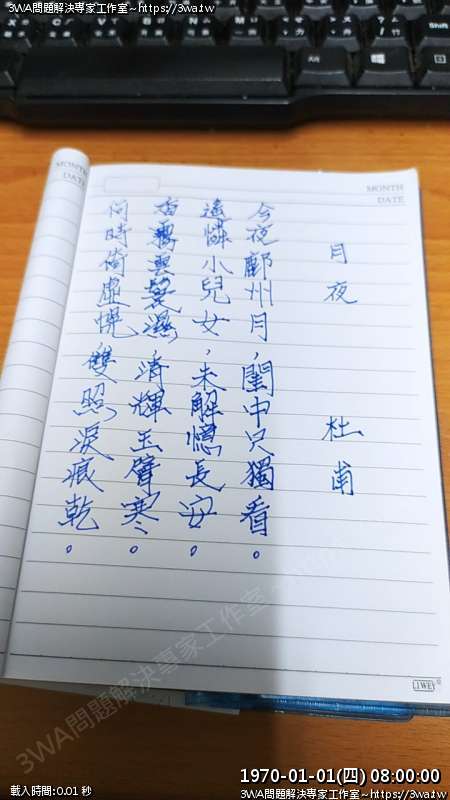 3WA問題解決專家工作室~https://3wa.tw
3WA問題解決專家工作室~https://3wa.tw
MONTH
DATE
MONTH
DATE
月夜 杜甫
今夜鄜州月，閨中只獨看。
遙憐小兒女，未解憶長安。
香霧雲鬟濕，清輝玉臂寒。
何時倚虛幌，雙照淚痕乾。
3WA問題解決專家工作室~https://3wa.tw
載入時間:0.01 秒
1970-01-01(四) 08:00:00
3WA問題解決專家工作室~https://3wa.tw